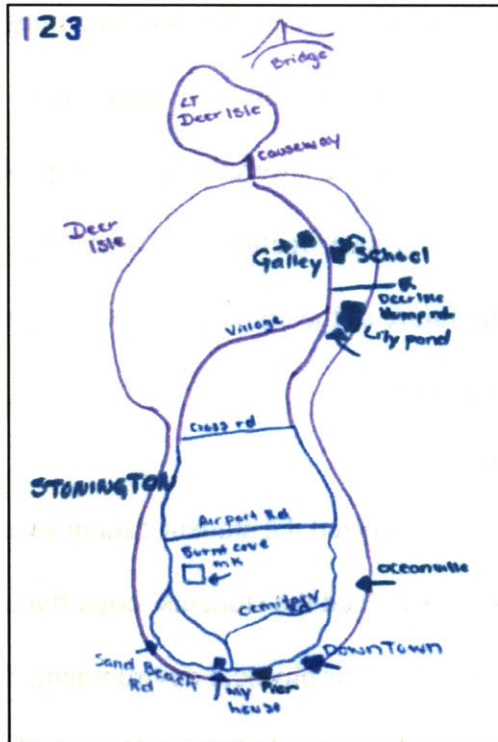 123
Bridge
LT
Deer Isle
causeway
Deer
Isle
Galley
School
Deer Isle
Dump rd
Lily pond
Village
Cross rd
STONINGTON
Airport Rd
Burnt cove
mk
Oceanville
cemitary
Rd
Sand Beach
Rd
My
house
Pier
DownTown